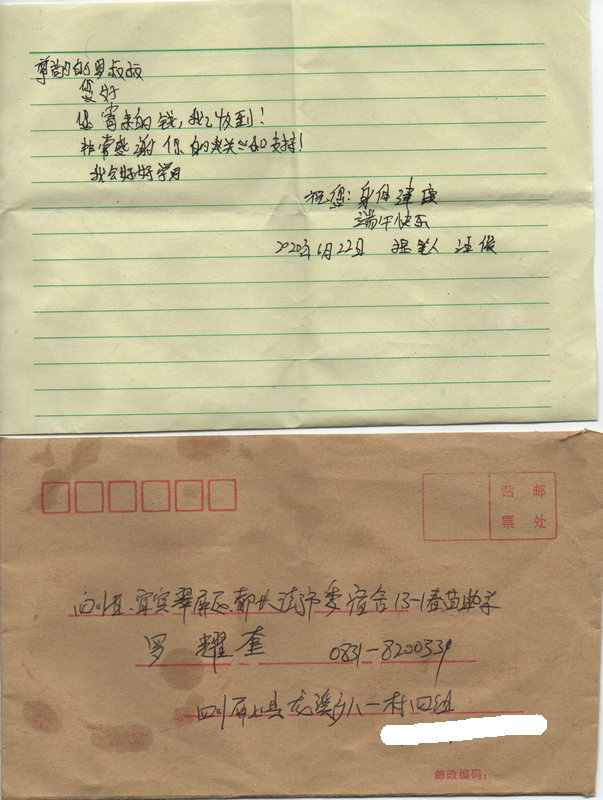 尊敬的罗叔叔
您好
您寄来的钱,我已收到!
非常感谢你的关心和支持!
我会好好学习
祝您:身体健康
端午快乐
2020年6月22日 提笔人 汪俊
贴 邮
票 处
四川省宜宾翠屏区都长街市委宿舍13-1春苗助学
罗耀奎 0831-8200339
四川屏山县龙溪乡八一村四组
邮政编码: